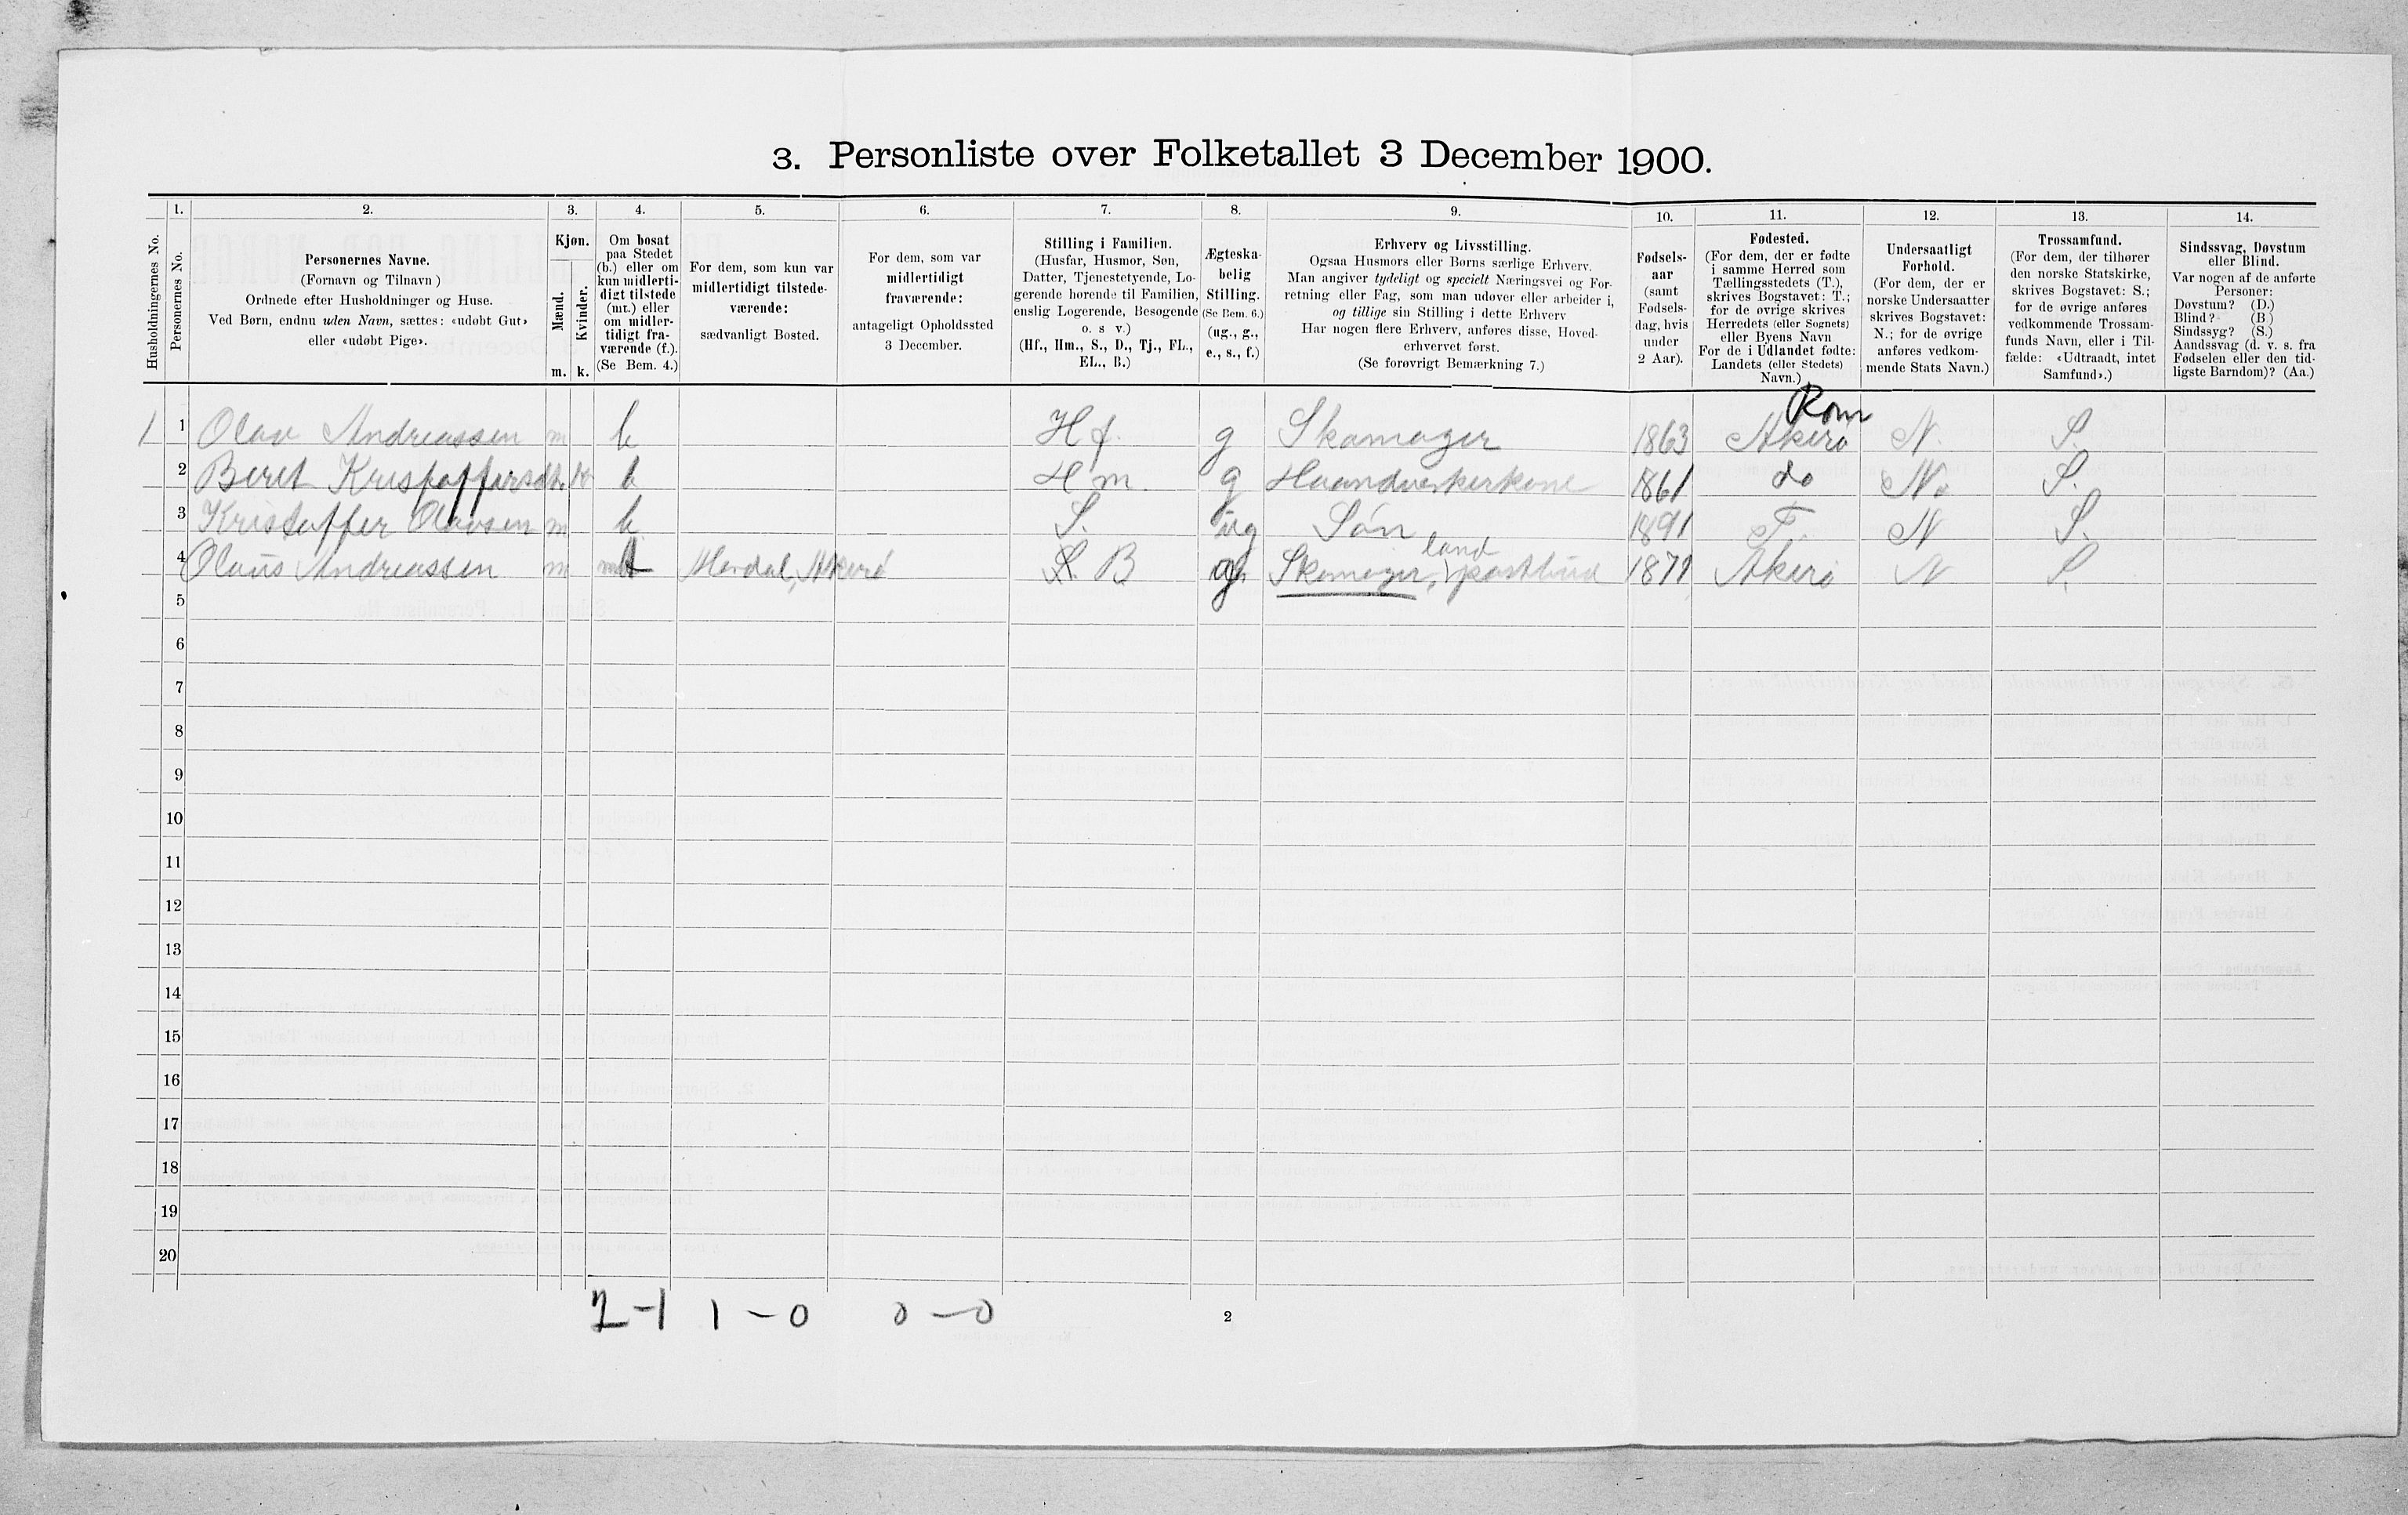 3. Personliste over Folketallet 3 December 1900.
Husholdningernes No.
1. Personernes No.
2. Personernes Navne.
(Fornavn og Tilnavn)
Ordnede efter Husholdninger og Huse.
Ved Børn, endnu uden Navn, sættes: «udøbt Gut»
eller «udøbt Pige».
3. Kjøn.
Mænd. m.
Kvinder. k.
4. Om bosat
paa Stedet
(b.) eller om
kun midlerti-
digt tilstede
(mt.) eller
om midler-
tidigt fra-
værende (f.).
(Se Bem. 4.)
5. For dem, som kun var
midlertidigt tilstede-
værende:
sædvanligt Bosted.
6. For dem, som var
midlertidigt
fraværende:
antageligt Opholdssted
3 December.
7. Stilling i Familien.
(Husfar, Husmor, Søn,
Datter, Tjenestetyende, Lo-
gerende hørende til Familien,
enslig Logerende, Besøgende
o. s v.)
(Hf., Hm., S., D., Tj., FL.,
EL., B.)
8. Ægteska-
belig
Stilling.
(Se Bem. 6.)
(ug., g.,
e., s., f.)
9. Erhverv og Livsstilling.
Ogsaa Husmors eller Børns særlige Erhverv.
Man angiver tydeligt og specielt Næringsvei og For-
retning eller Fag, som man udøver eller arbeider i,
og tillige sin Stilling i dette Erhverv
Har nogen flere Erhverv, anføres disse, Hoved-
erhvervet først.
(Se forøvrigt Bemærkning 7.)
10. Fødsels-
aar
(samt
Fødsels-
dag, hvis
under
2 Aar).
11. Fødested.
(For dem, der er fødte
i samme Herred som
Tællingsstedets (T.),
skrives Bogstavet: T.;
for de øvrige skrives
Herredets (eller Sognets)
eller Byens Navn
For de i Udlandet fødte:
Landets (eller Stedets)
Navn.)
12. Undersaatligt
Forhold.
(For dem, der er
norske Undersaatter
skrives Bogstavet:
N.; for de øvrige
anføres vedkom-
mende Stats Navn.)
13. Trossamfund.
(For dem, der tilhører
den norske Statskirke,
skrives Bogstavet: S.;
for de øvrige anføres
vedkommende Trossam-
funds Navn, eller i Til-
fælde: «Udtraadt, intet
Samfund».)
14. Sindssvag, Døvstum
eller Blind.
Var nogen af de anførte
Personer:
Døvstum? (D.)
Blind? (B)
Sindssyg? (S.)
Aandssvag (d. v. s. fra
Fødselen eller den tid-
ligste Barndom)? (Aa.)
Rom
1 1 Olav Andreassen m b Hf. g Skomager 1863 Akerø N. S.
2 Beret Kristoffersdtr. k b Hm g Haandverkerkone 1861 do N. S.
3 Kristoffer Olavsen m b S. ug Søn 1891 T. N S.
land
4 Olaus Andreassen m mt Mordal, Akerø B g Skomager, postbud 1871 Akerø N S.
5
6
7
8
9
10
11
12
13
14
15
16
17
18
19
20
2-1 1-0 0-0
2